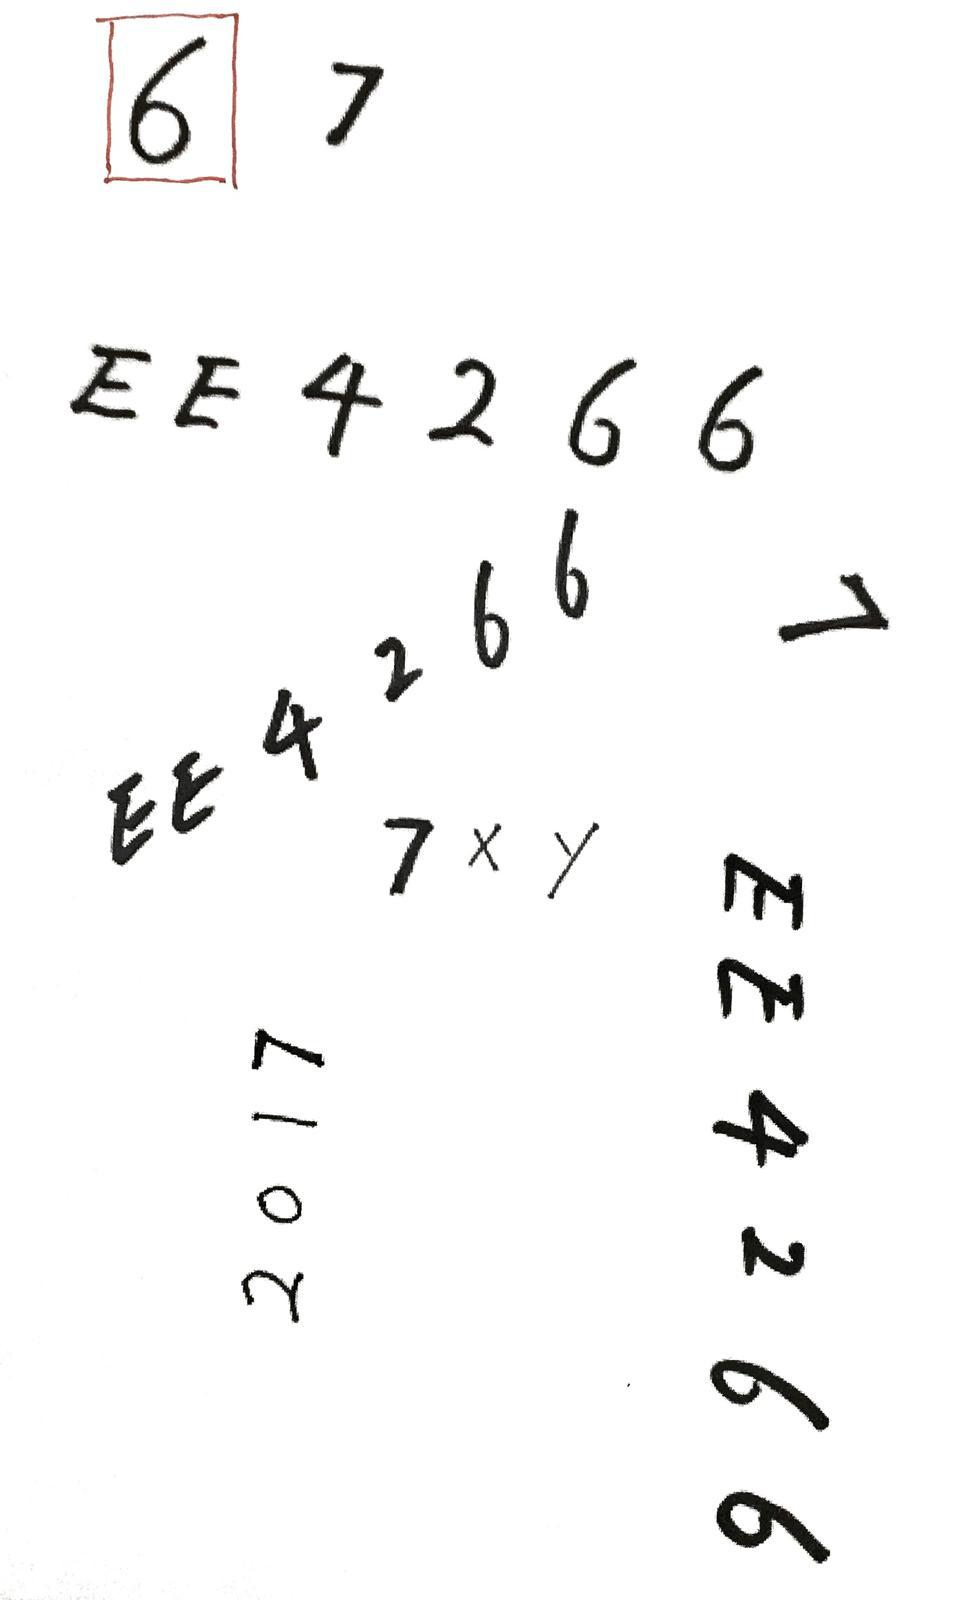 6 7
EE 4 2 6 6
EE 4 2 6 6
7
7 x y
EE 4 2 6 6
2017